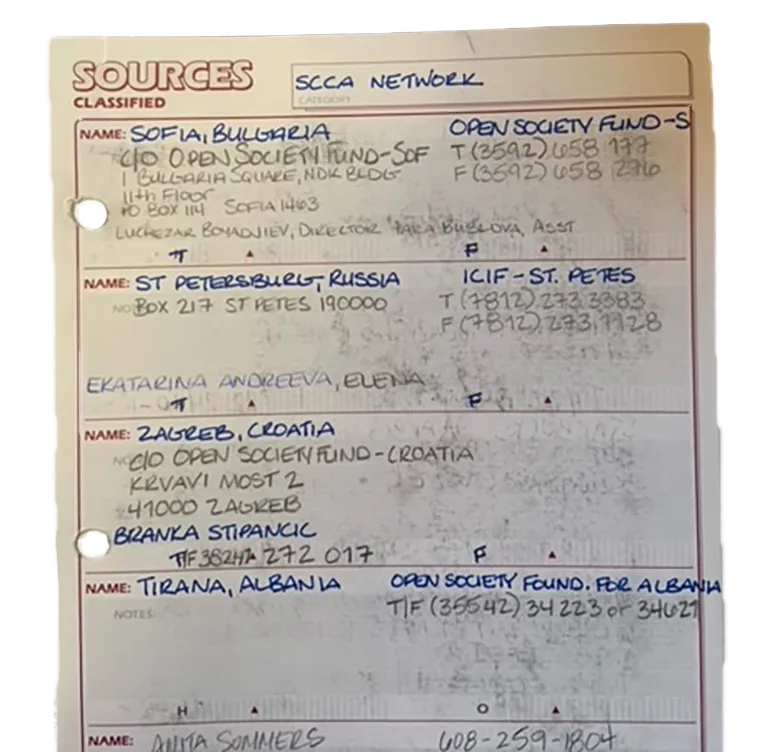 SOURCES
CLASSIFIED
SCCA NETWORK
CATEGORY
NAME: SOFIA, BULGARIA OPEN SOCIETY FUND-S
C/O OPEN SOCIETY FUND-SOF T (3592) 658 177
1 BULGARIA SQUARE, NDK BLDG F (3592) 658 276
11th FLOOR
PO BOX 114 SOFIA 1463
LUCHEZAR BOYADJIEV, DIRECTOR BUBLOVA, ASST
T F
NAME: ST PETERSBURG, RUSSIA ICIF - ST. PETES
BOX 217 ST PETES 190000 T (7812) 273 3383
F (7812) 273 1128
EKATARINA ANDREEVA, ELENA
T F
NAME: ZAGREB, CROATIA
C/O OPEN SOCIETY FUND - CROATIA
KRVAVI MOST 2
41000 ZAGREB
BRANKA STIPANCIC
T/F 272 017 F
NAME: TIRANA, ALBANIA OPEN SOCIETY FOUND. FOR ALBANIA
NOTES: T/F (35542) 34223 or 34621
H O
NAME: ANITA SOMMERS 608-259-1804